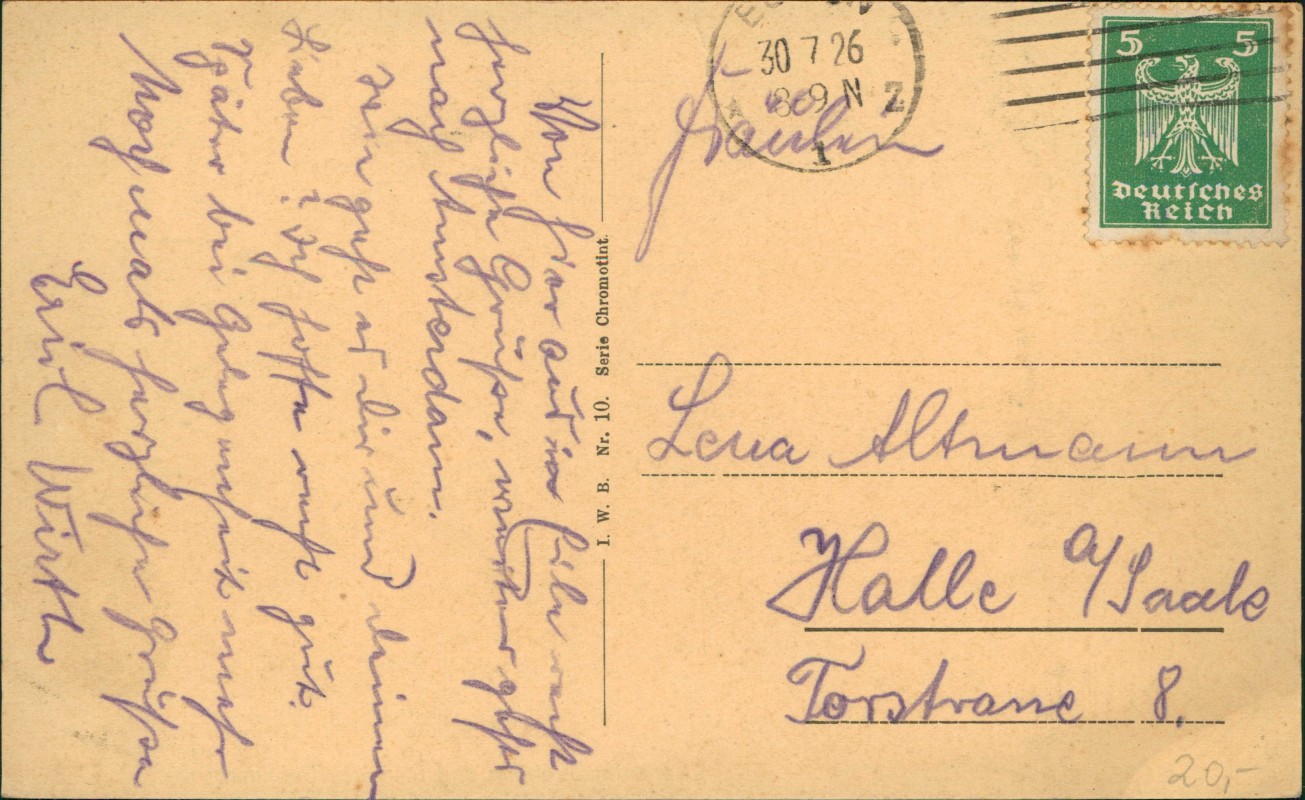 Von hier aus in Eile recht
herzliche Grüße, weiter gehts
nach Amsterdam.
Wie geht es dir und deinen
Lieben? Ich hoffe recht gut.
Später bei Gelegenheit mehr
Nochmals herzliche Grüße
Erich Wirth
I. W. B. Nr. 10. Serie Chromotint.
30 7 26
8-9 N
Z
1
5 5
Deutsches
Reich
Fräulein
Lena Altmann
Halle a/Saale
Torstrasse 8.
20,-